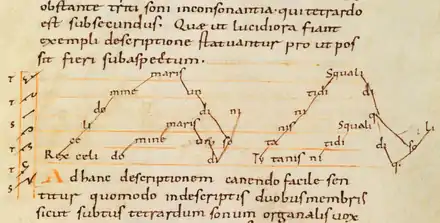 obstante triti soni inconsonantia. qui tetrardo
est subsecundus. Quę ut lucidiora fiant
exempli descriptione statuantur pro ut pos
sit fieri subaspectum.
maris Squali
T mine un tidi
T do ni
S li maris ni Squali di
T ce mine un so nis tidi so
T Rex celi do di Ty tanis ni di li
S q
Ad hanc descriptionem canendo facile sen
titur quomodo indescriptis duobus membris
sicut subtus tetrardum sonum organalis vox